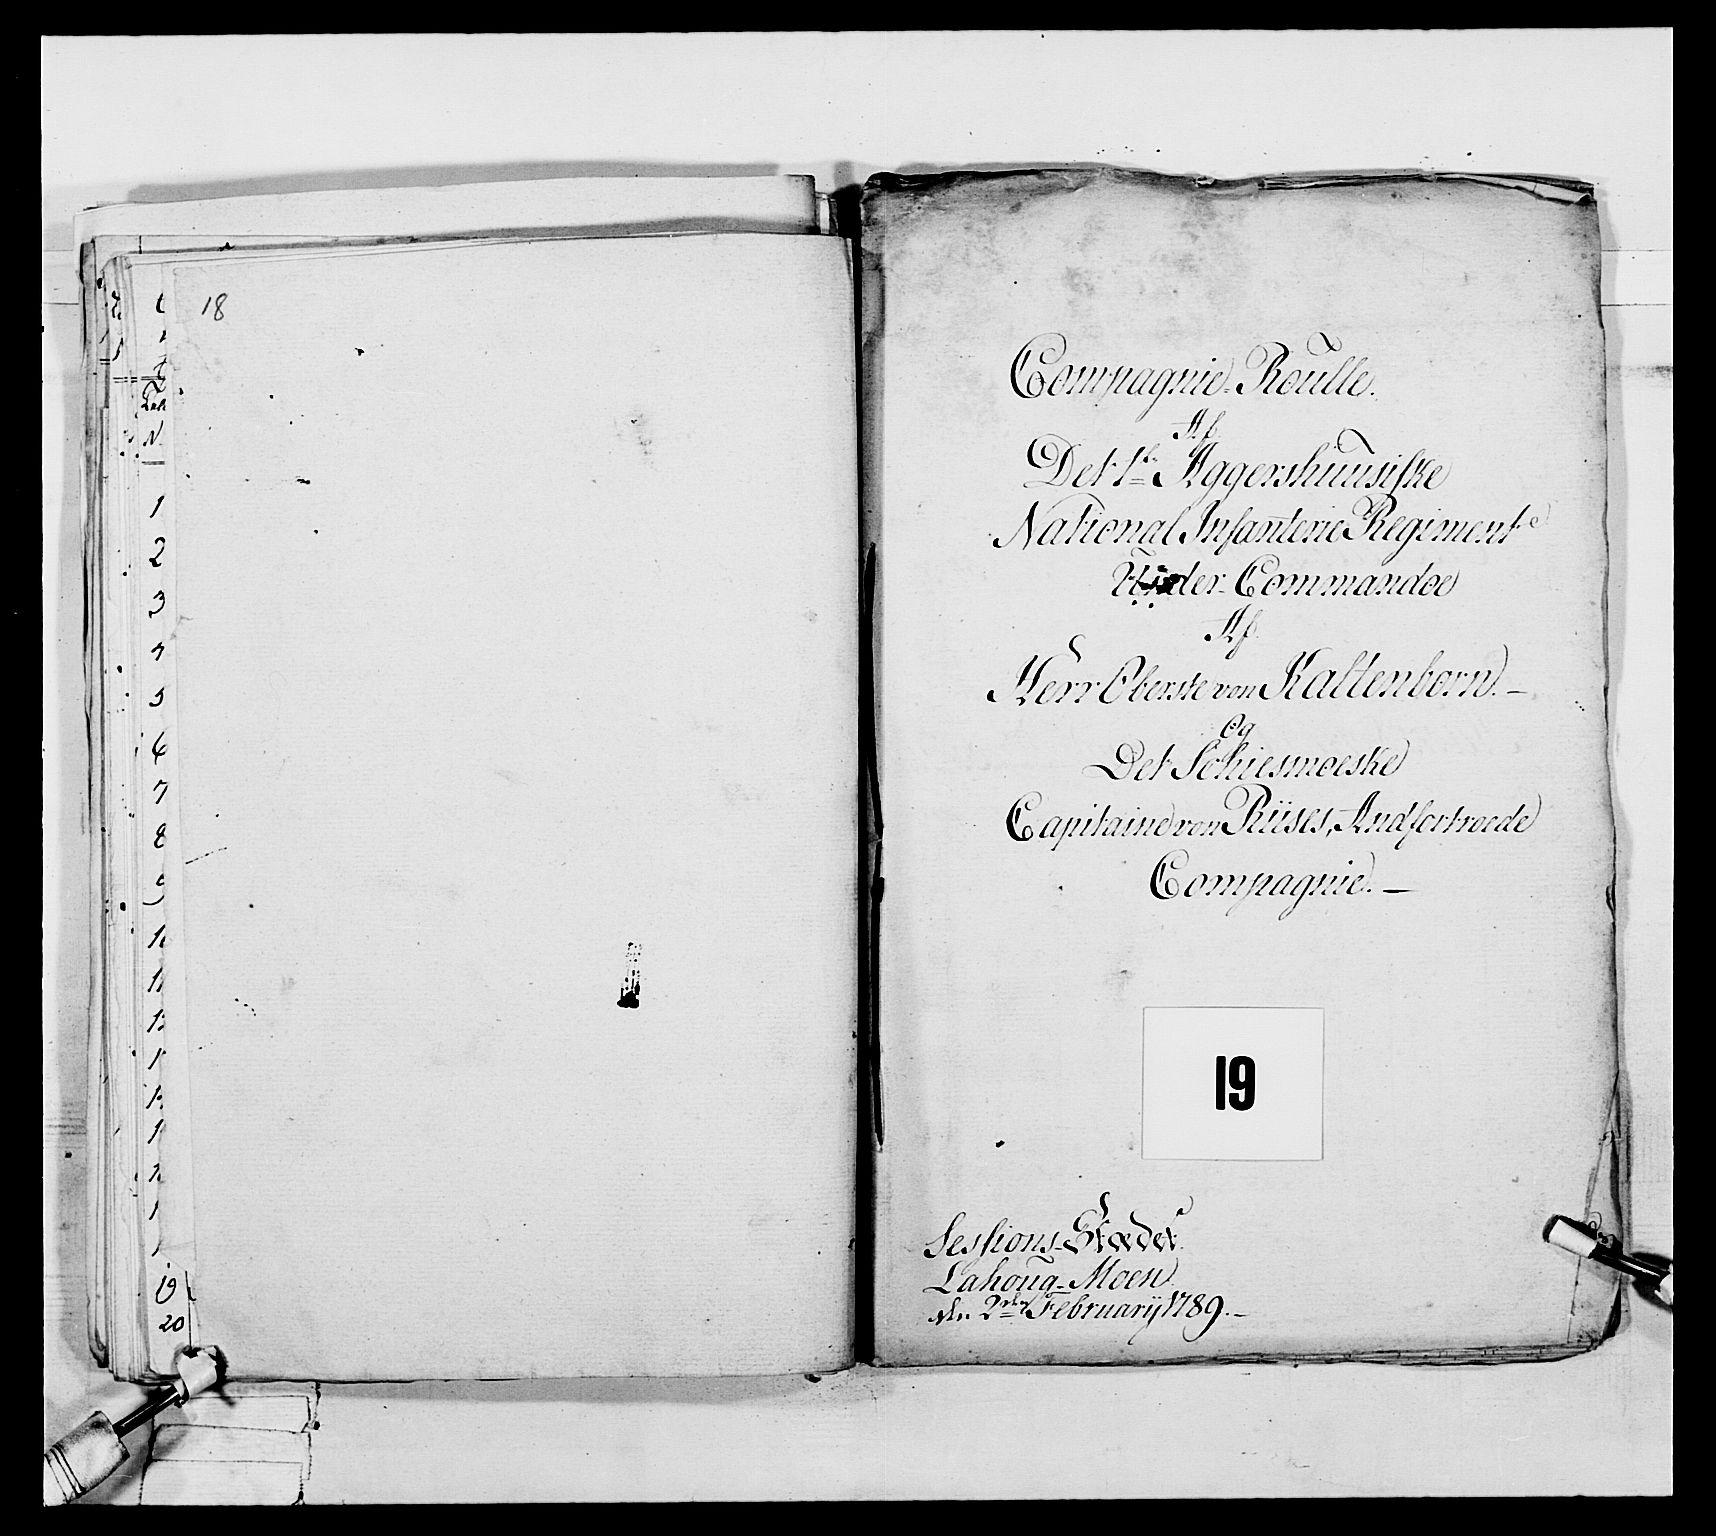 18
1
2
3
4
5
6
7
8
9
19
20
Compagnie-Roulle.
Af
Det 1te Aggershuusiske
National Infanterie Regimente
Under Commandoe
Af
Herr Oberste von Kaltenborn. –
Og
Det Schiesmoeske
Capitaine von Riises, Andfortroede
Compagnie. –
19
Sessions-Stædet
Lahoug-Moen
den 2den Februarij 1789. –